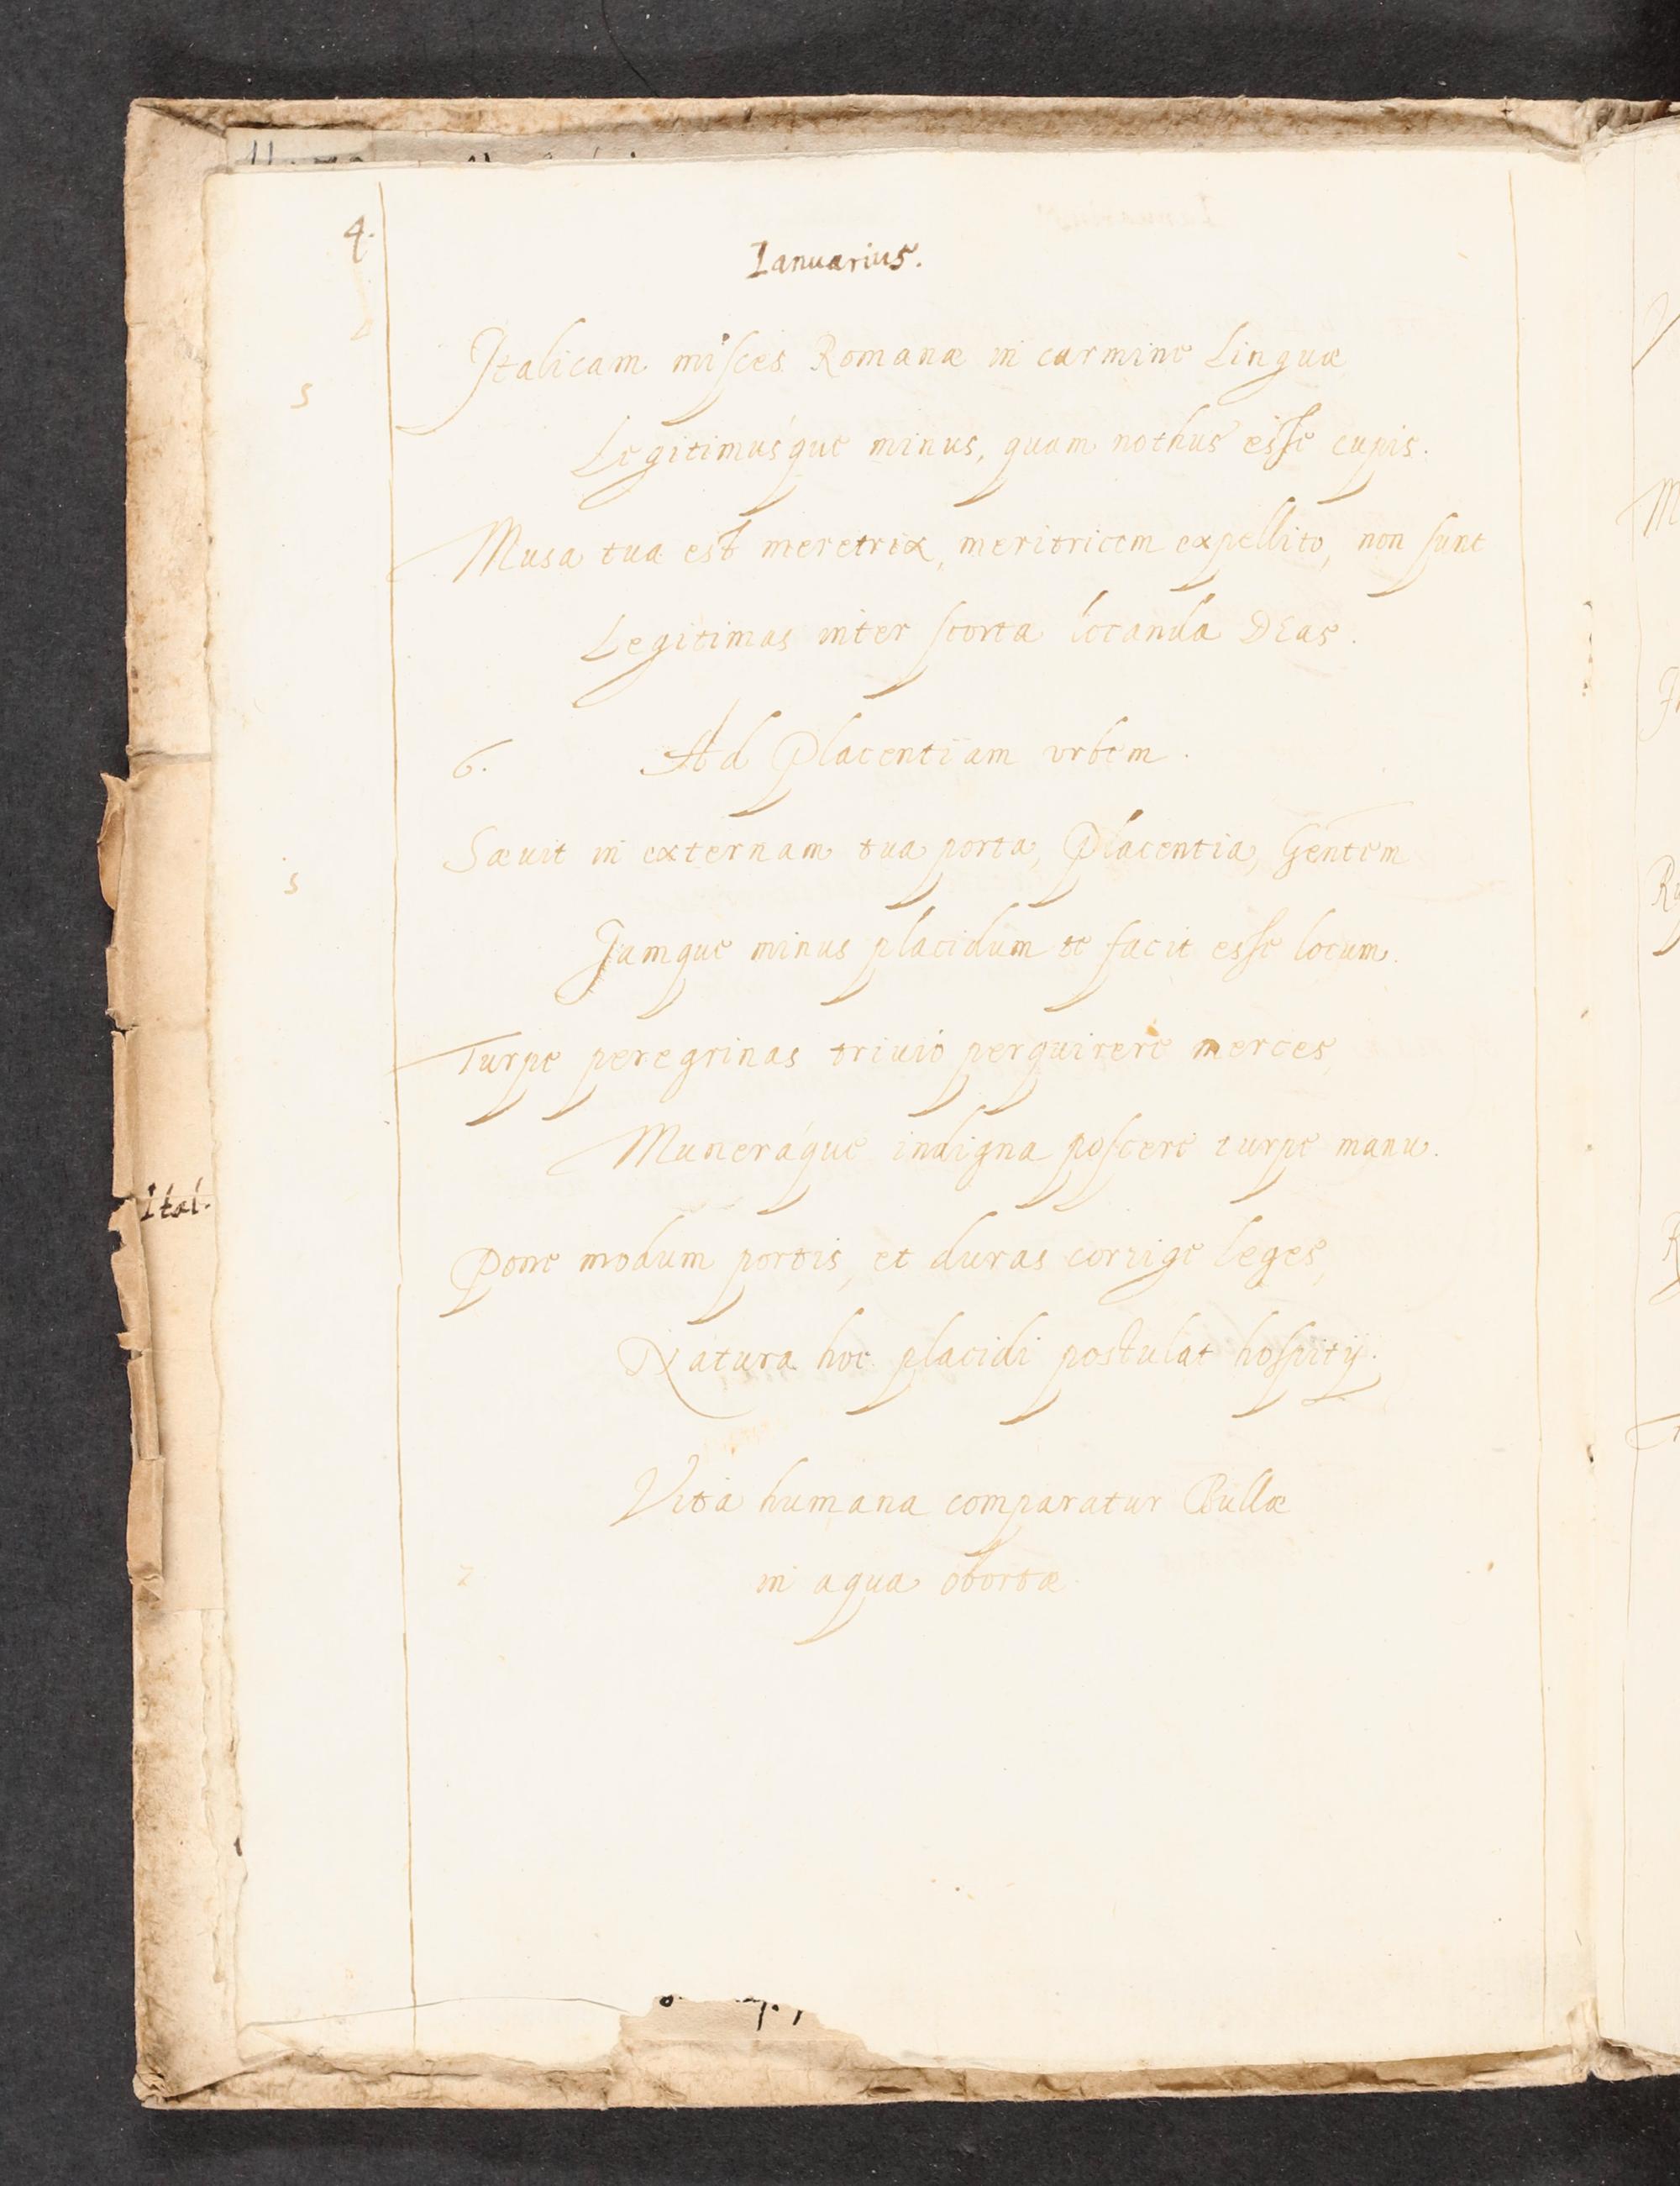 4.
Ianuarius.
Italicam misces Romanæ in carmine Linguæ
5
Legitimusque minus, quam nothus esse cupis.
Musa tua est meretrix, meritricem expellito, non sunt
Legitimas inter scorta locanda DEas.
6. Ad Placentiam vrbem.
Sæuit in externam tua porta, Placentia, Gentem
5
Jamque minus placidum te facit esse locum.
Turpe peregrinas triuio perquirere merces,
Muneráque indigna poscere turpe manu.
Ital.
Pone modum portis, et duras corrige Leges,
Natura hoc placidi postulat hospitij.
Vita humana comparatur Bullæ
2 in aqua obortæ